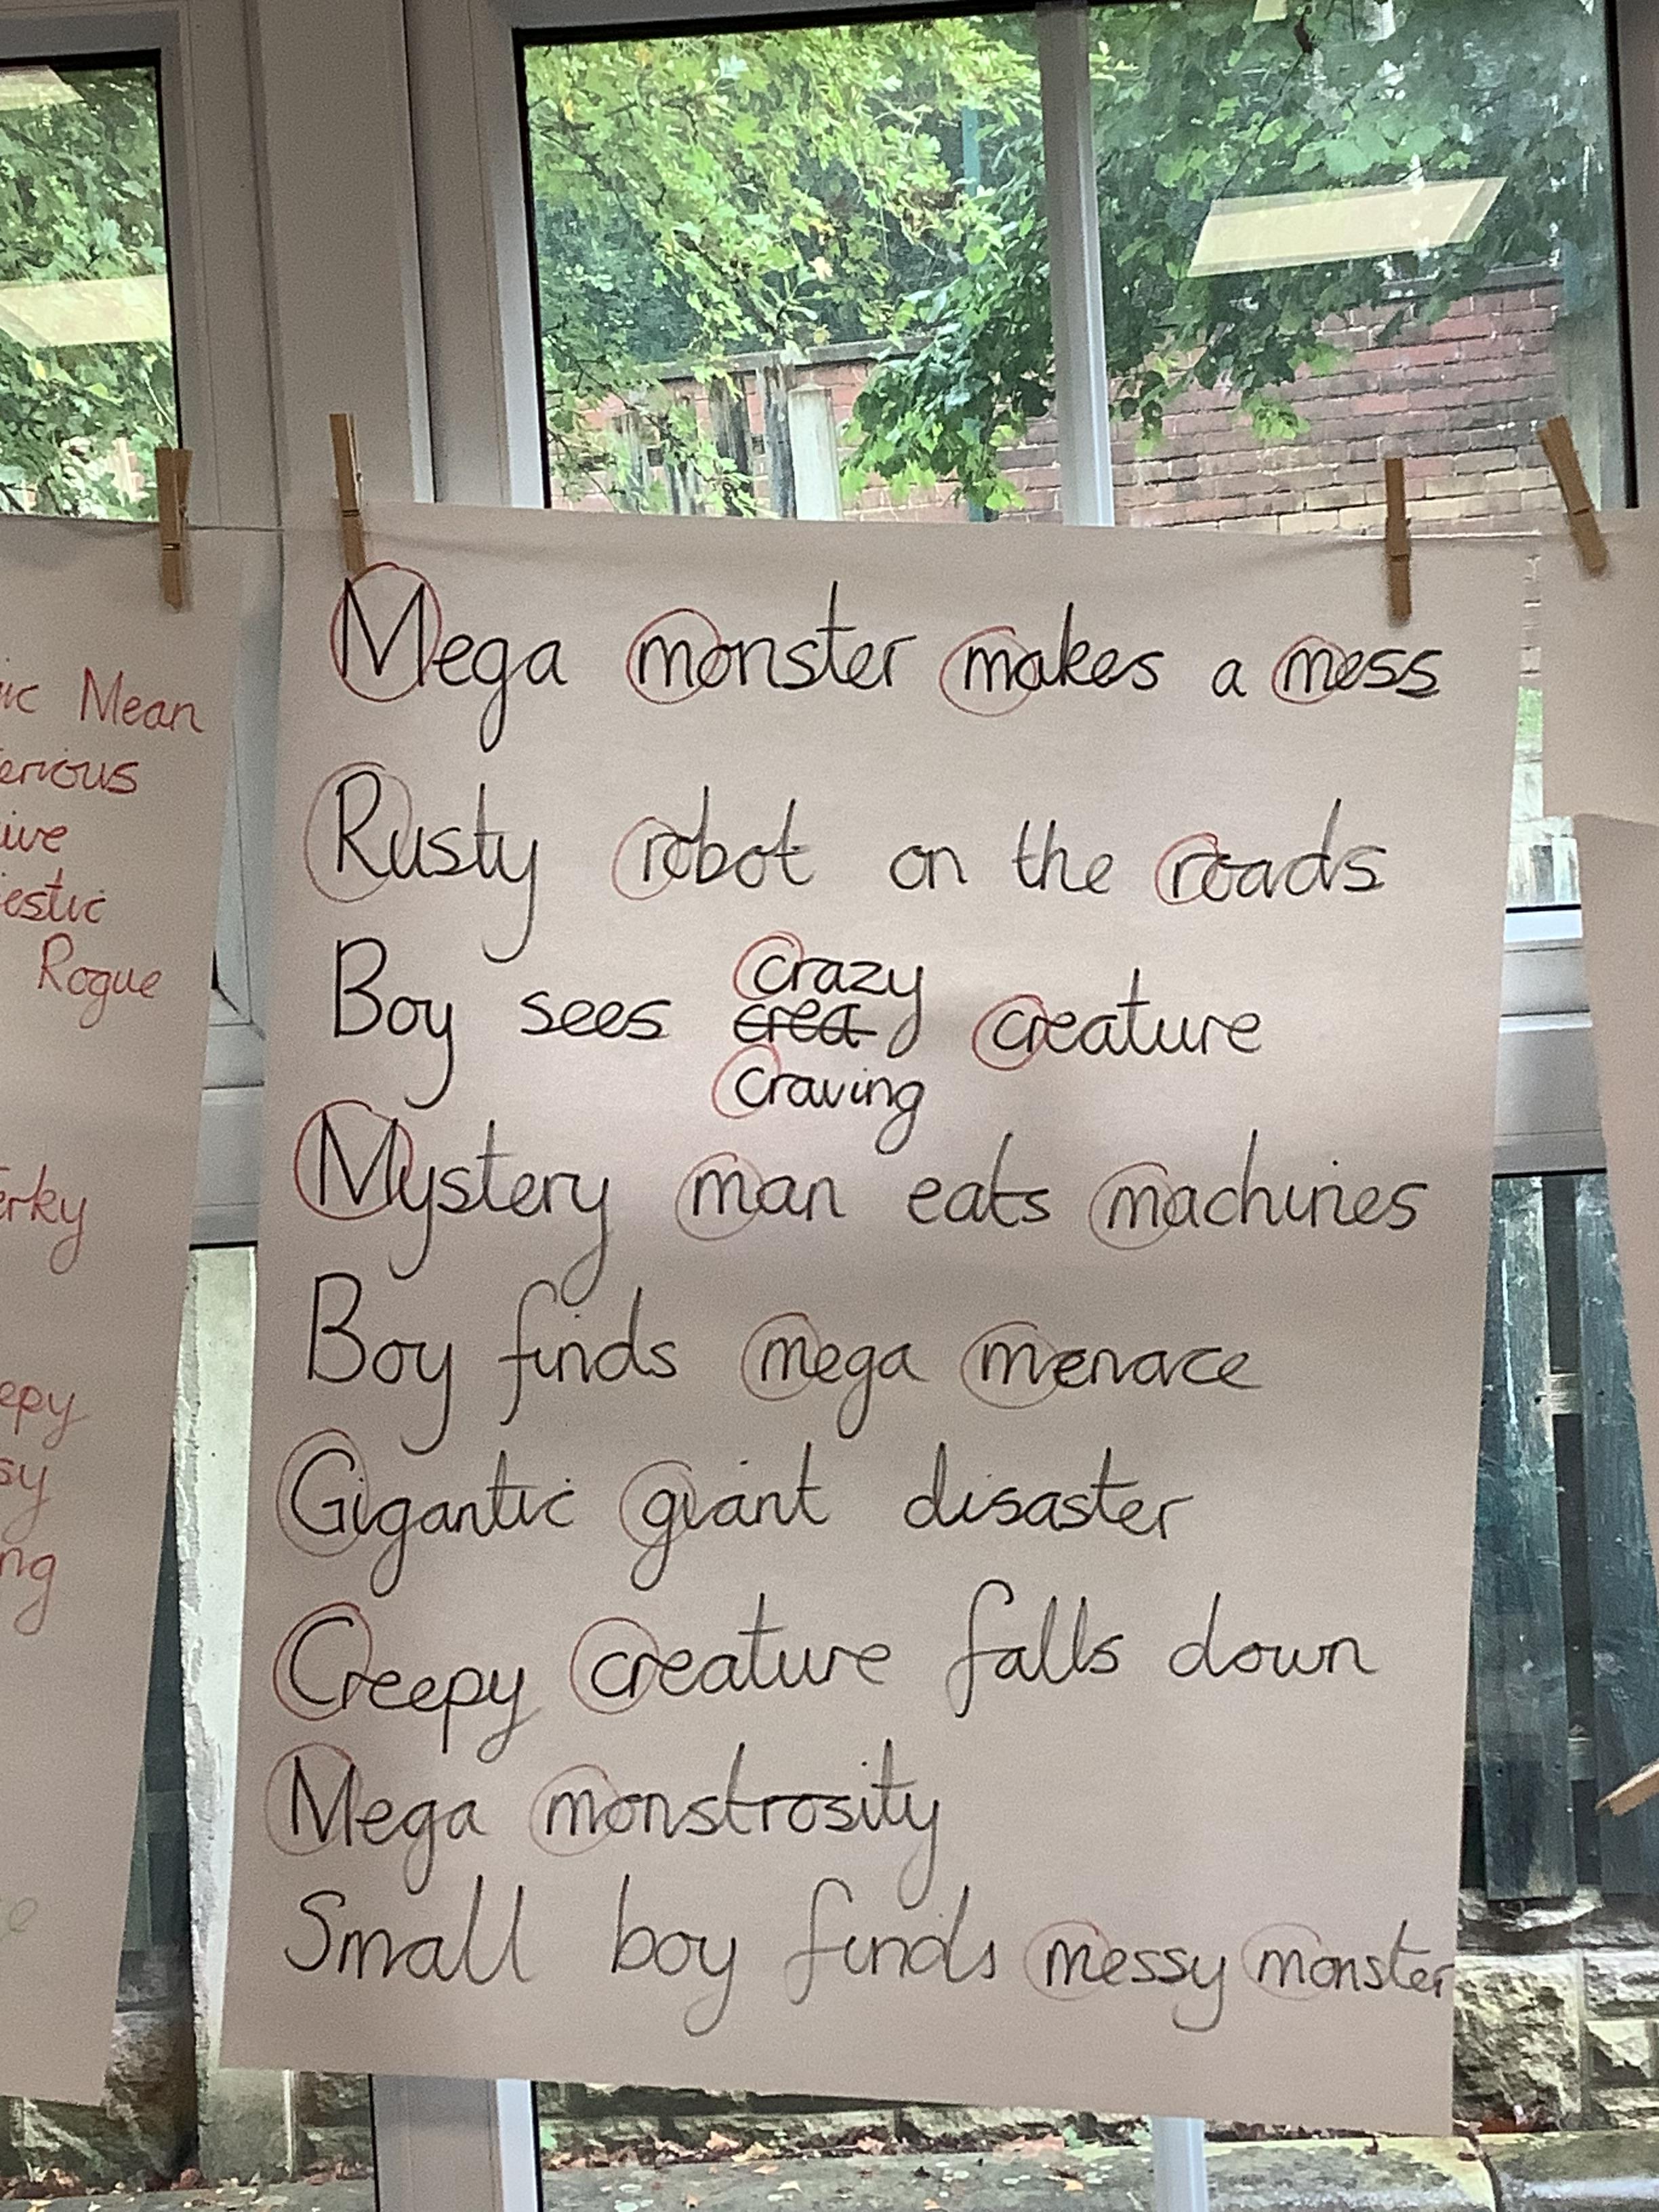 Mean
Rogue
Mega monster makes a mess
Rusty robot on the roads
crazy
Boy sees crea creature
craving
Mystery man eats machines
Boy finds mega menace
Gigantic giant disaster
Creepy creature falls down
Mega monstrosity
Small boy finds messy monster